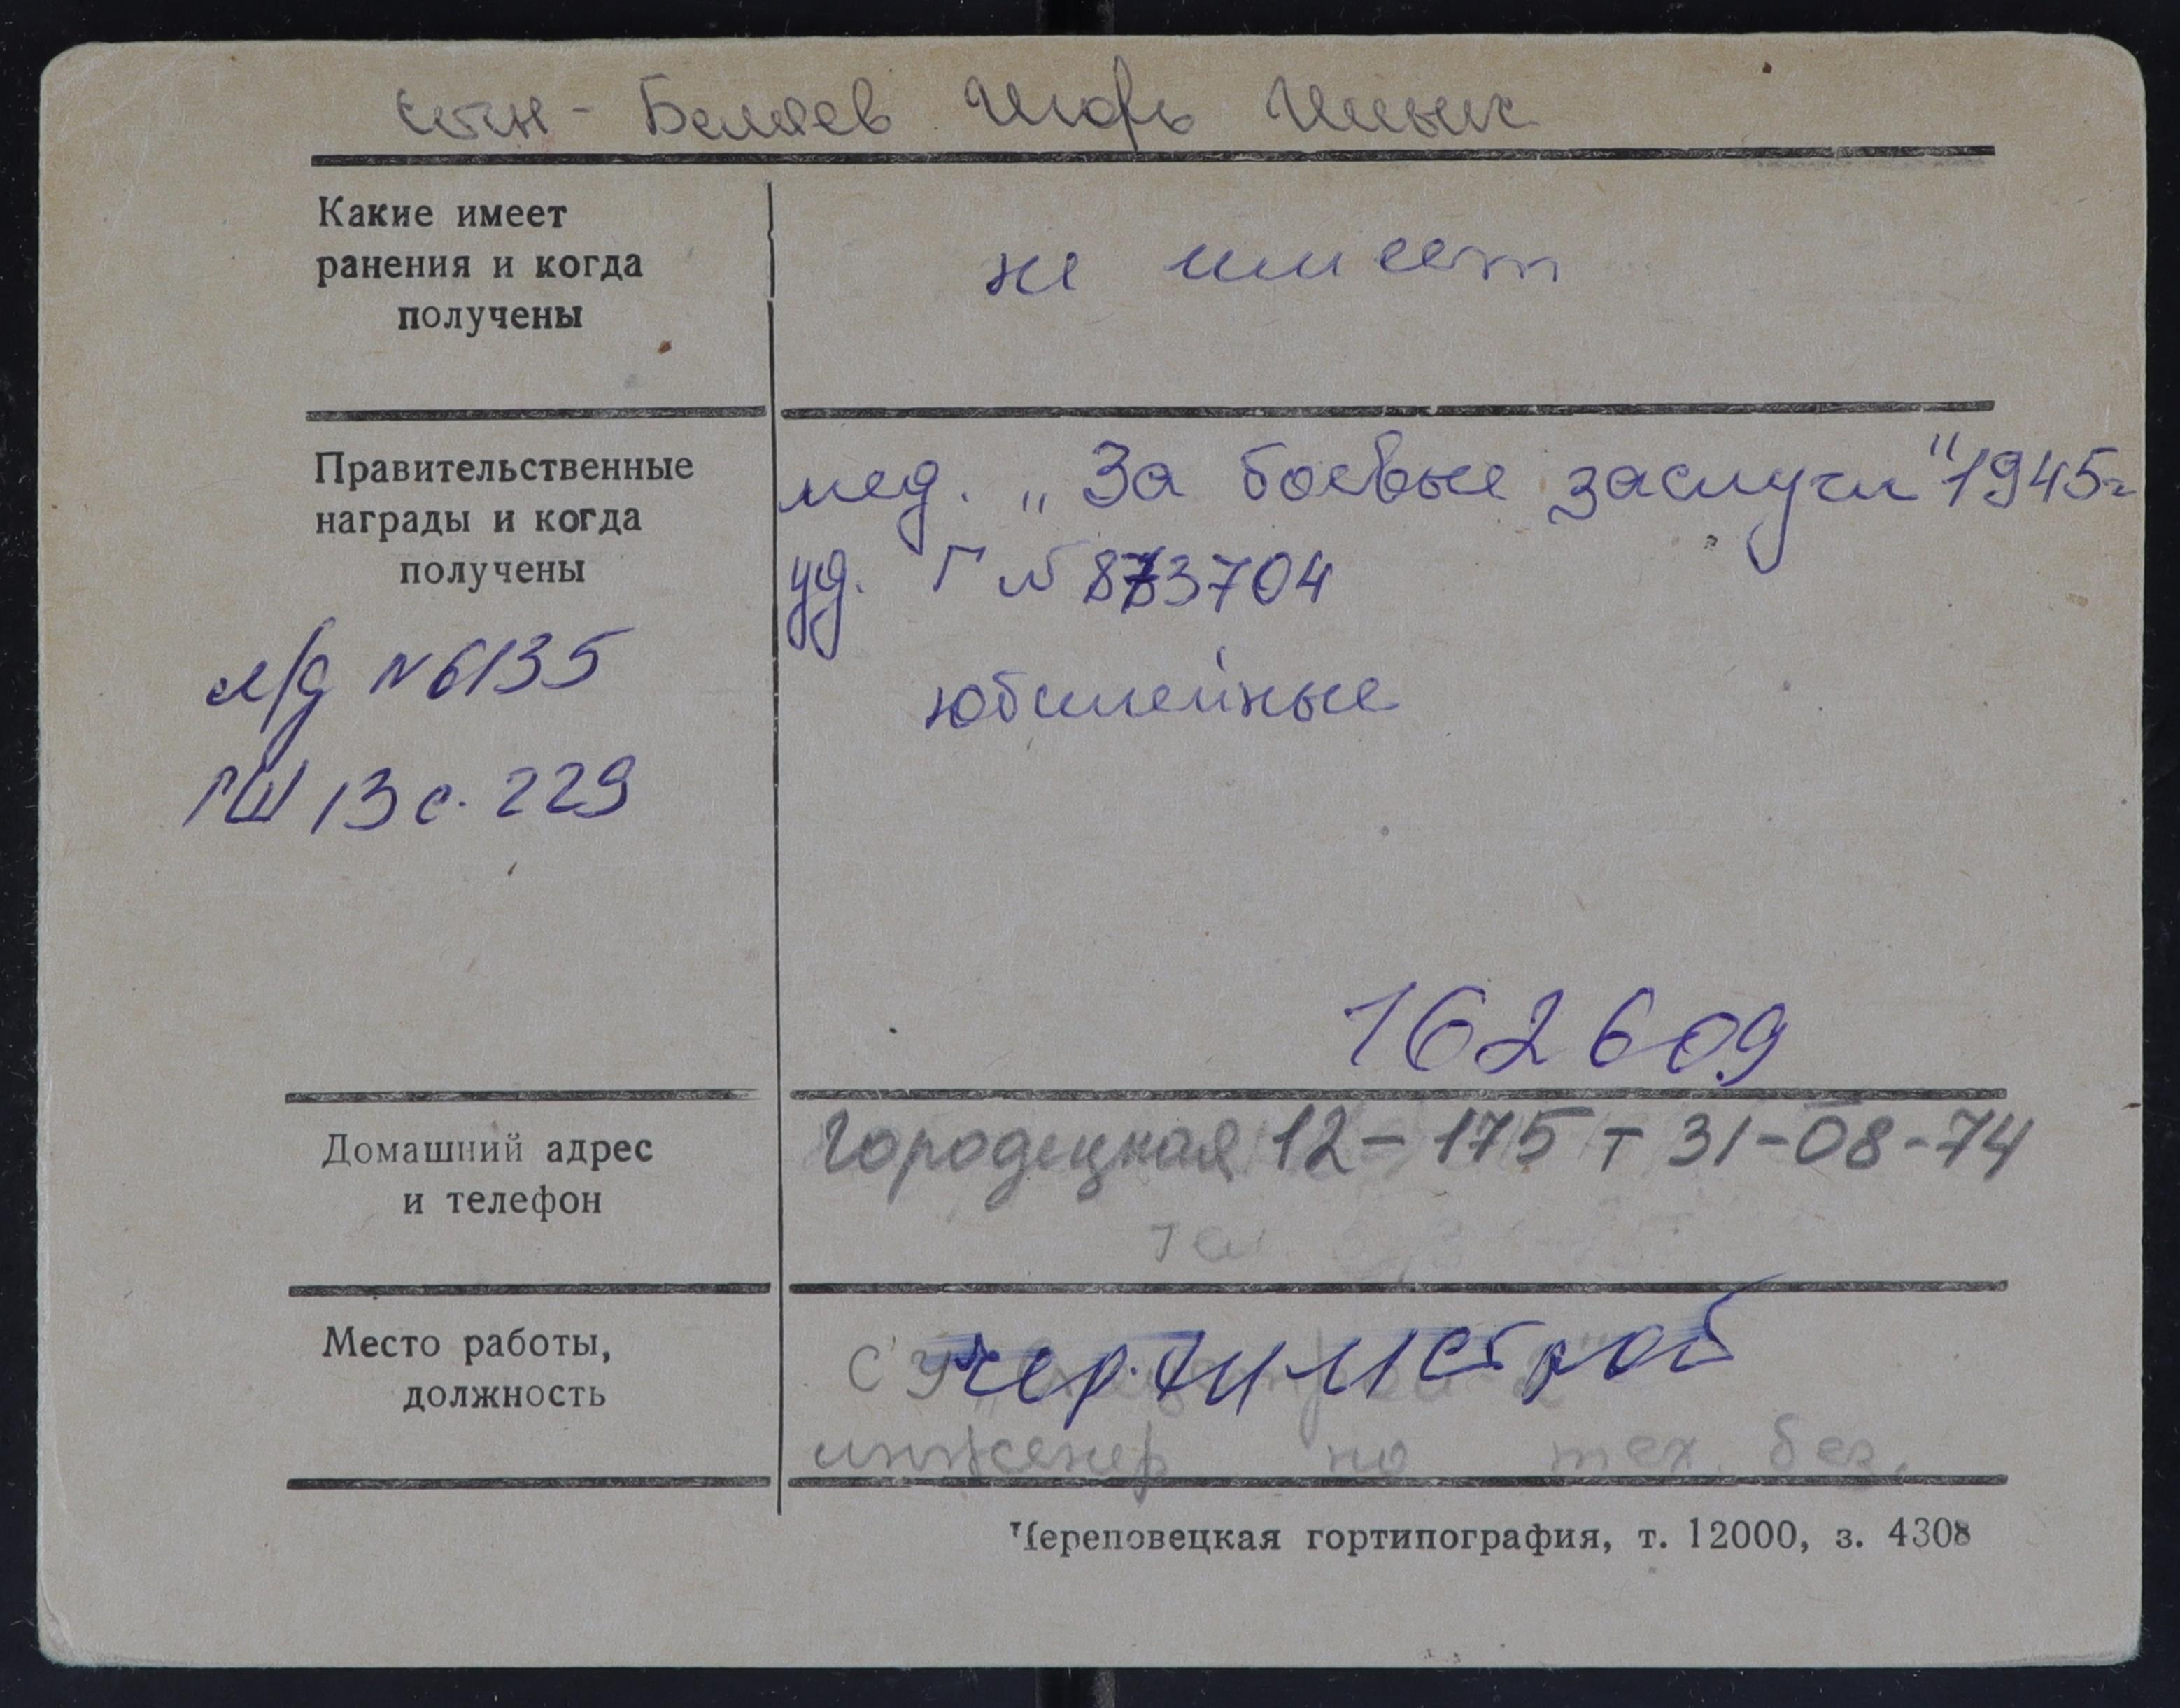 сын - Беляев Игорь Ильич
Какие имеет
ранения и когда
получены
не имеет
Правительственные
награды и когда
получены
мед. „За боевые заслуги" 1945г
уд. Г № 873704
юбилейные
л/д № 6135
ГШ 13 с. 229
162609
Домашний адрес
и телефон
Городецкая 12-175 т 31-08-74
Место работы,
должность
СУ черхимстрой
инженер по тех. без.
Череповецкая гортипография, т. 12000, з. 4308